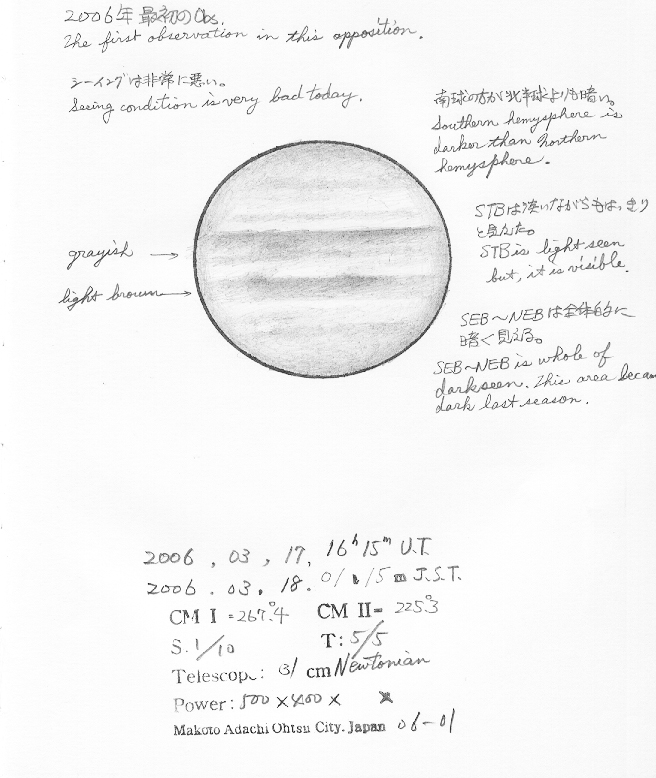 2006年 最初のObs.
The first observation in this opposition.
シーイングは非常に悪い。
Seeing condition is very bad today.
南半球の方が北半球よりも暗い。
Southern hemysphere is
darker than northern
hemysphere.
STBは淡いながらもはっきり
と見えた。
STB is light seen
but, it is visible.
grayish →
light brown →
SEB~NEBは全体的に
暗く見える。
SEB~NEB is whole of
dark seen. This area becam
dark last season.
2006, 03, 17, 16h 15m U.T.
2006. 03. 18. 01h 15m J.S.T.
CM I = 267.°4 CM II= 225.°3
S. 1/10 T: 5/5
Telescope: 31 cm Newtonian
Power: 500 × 400 × ×
Makoto Adachi Ohtsu City. Japan 06-01